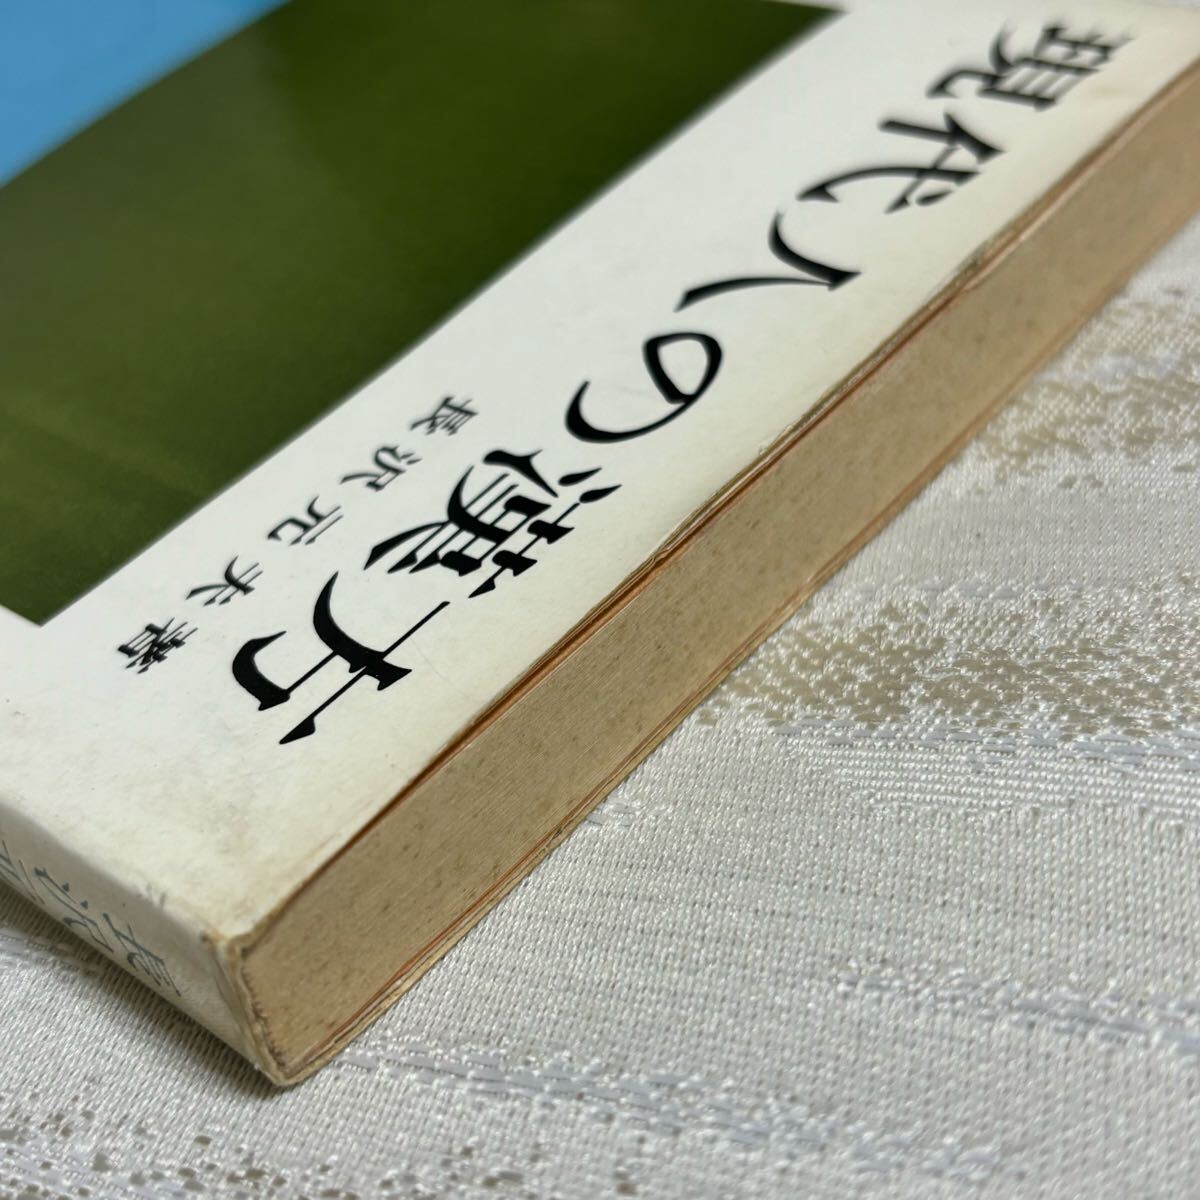 現代人の漢方
長沢元夫著
長沢